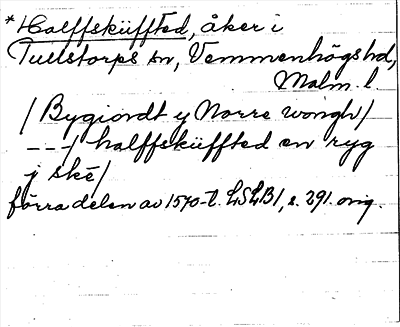 *Halffsküffted, åker i
Tullstorps sn, Vemmenhögs hd,
Malm. l.
/Bygiordt y Norre wongh/
---/ halffsküffted en ryg
y skè/
förra delen av 1570-t. LSLB1, s. 291. orig.